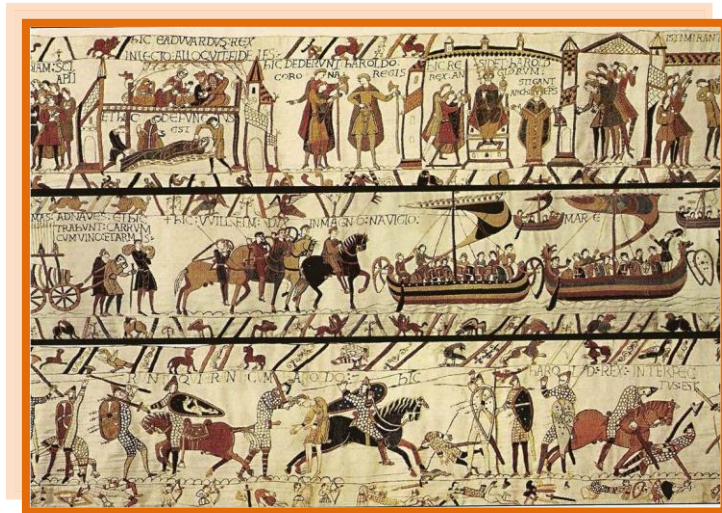 HIC EADVVARDVS:REX
INLECTO:ALLOQVIT:FIDELES:
ET HIC DEFVNCTVS
EST
HIC DEDERVNT:HAROLDO:
CORONA REGIS
HIC RE SIDET:HAROLD
REX:AN GLORVM:
STIGANT
ARCHIEPS
ISTI MIRANT
AD NAVES:ET HIC
TRAHVNT:CARRVM
CVM VINO:ET ARMIS:
+HIC:VVILLELM:DVX INMAGNO:NAVIGIO:
MARE
HAROLDO: HIC HAROLD:REX:INTERFEC
TVS:EST